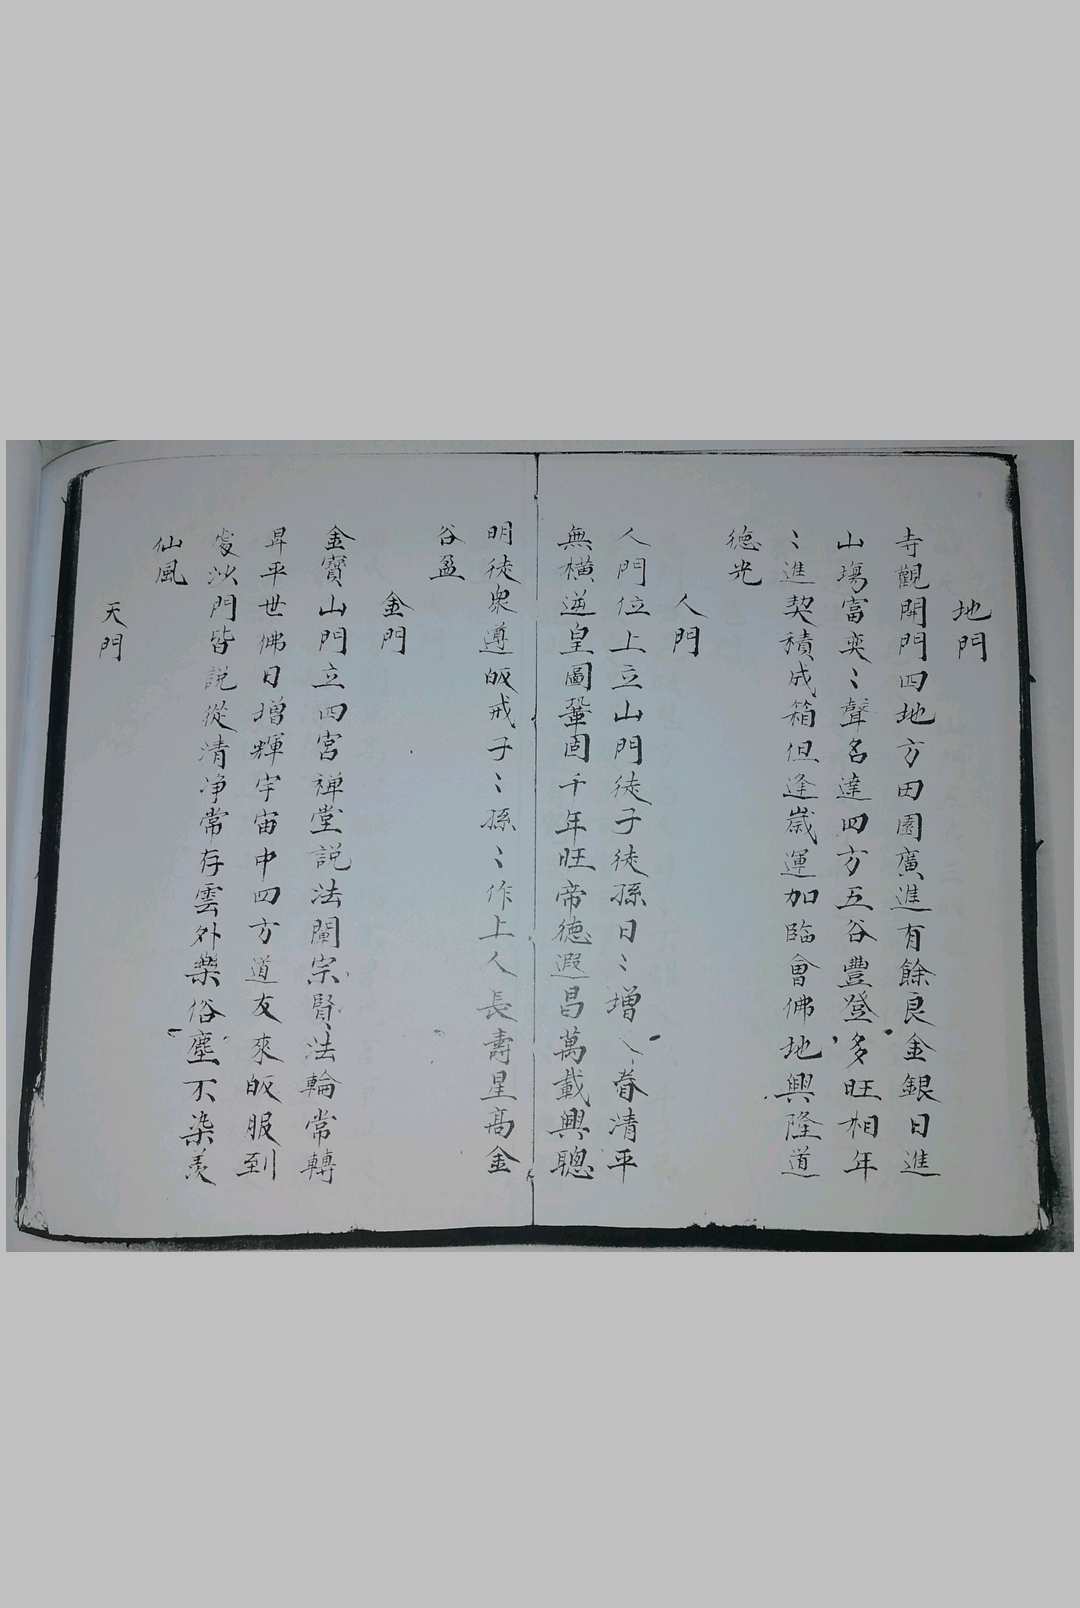 地門
寺觀開門四地方田園廣進有餘良金銀日進
山場富奕〻聲名達四方五谷豐登多旺相年
〻進契積成箱但逢歲運加臨會佛地興隆道
德光
人門
人門位上立山門徒子徒孫日〻增人眷清平
無橫逆皇圖鞏固千年旺帝德遐昌萬載興聰
明徒衆遵皈戒子〻孫〻作上人長壽星高金
谷盈
金門
金寶山門立四宮禅堂說法闡宗賢法輪常轉
昇平世佛日增輝宇宙中四方道友來皈服到
處沙門皆說從清净常存雲外樂俗塵不染羡
仙風
天門